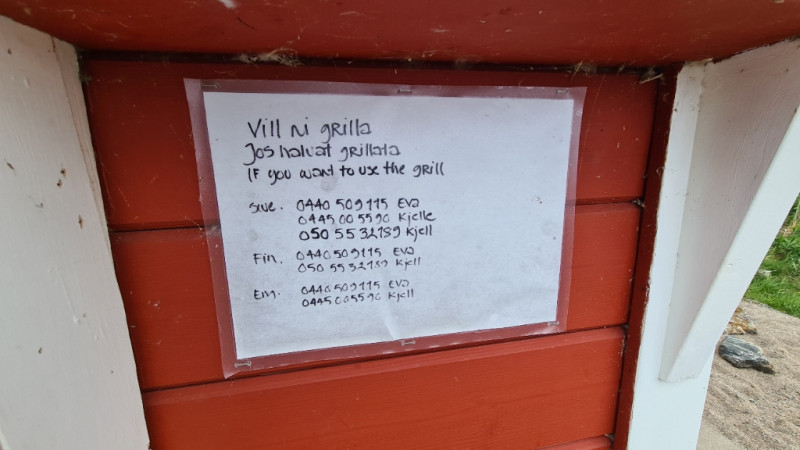 Vill ni grilla
Jos haluat grillata
IF you want to use the grill
swe. 0440 509 115 Eva
0445 00 55 90 Kjelle
050 55 32189 Kjell
Fin. 0440 50 9115 Eva
050 55 32189 Kjell
Em. 0440 50 9115 Eva
0445 00 55 90 Kjell